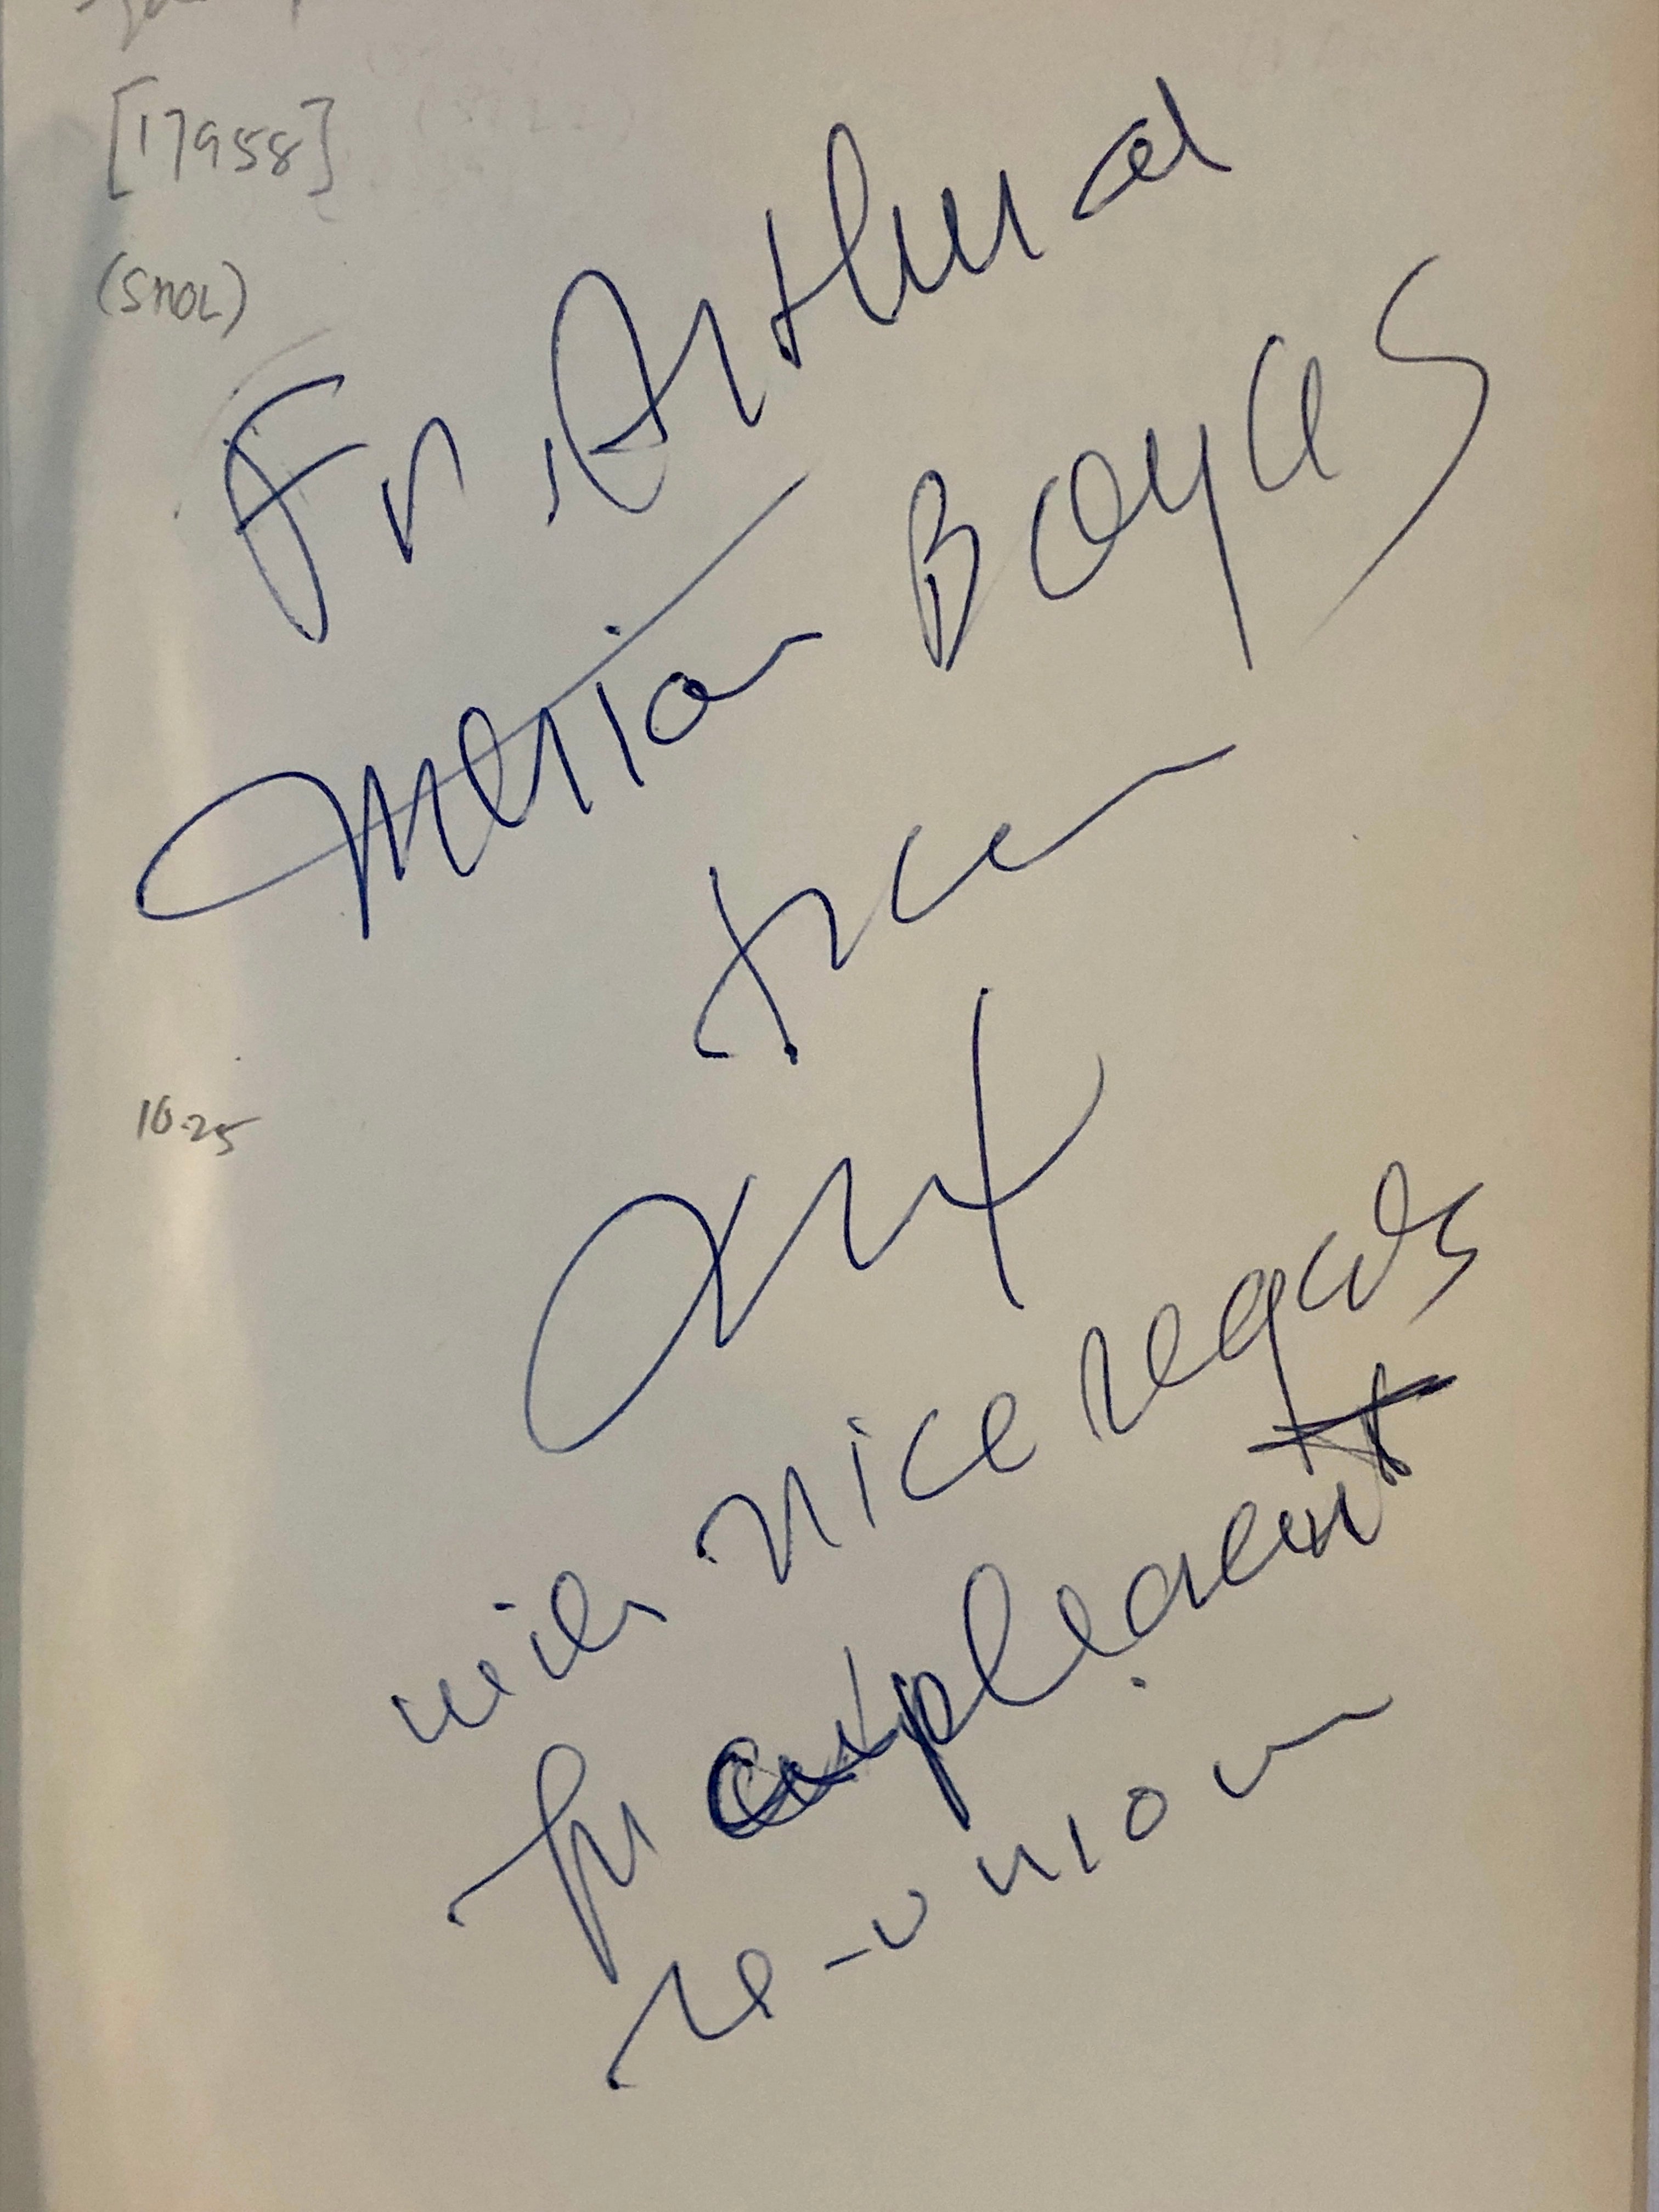 [17958]
(SNOL)
For Arthur a
Merion Boyars
from
10.25
with nice regards
for a pleasant
re-union